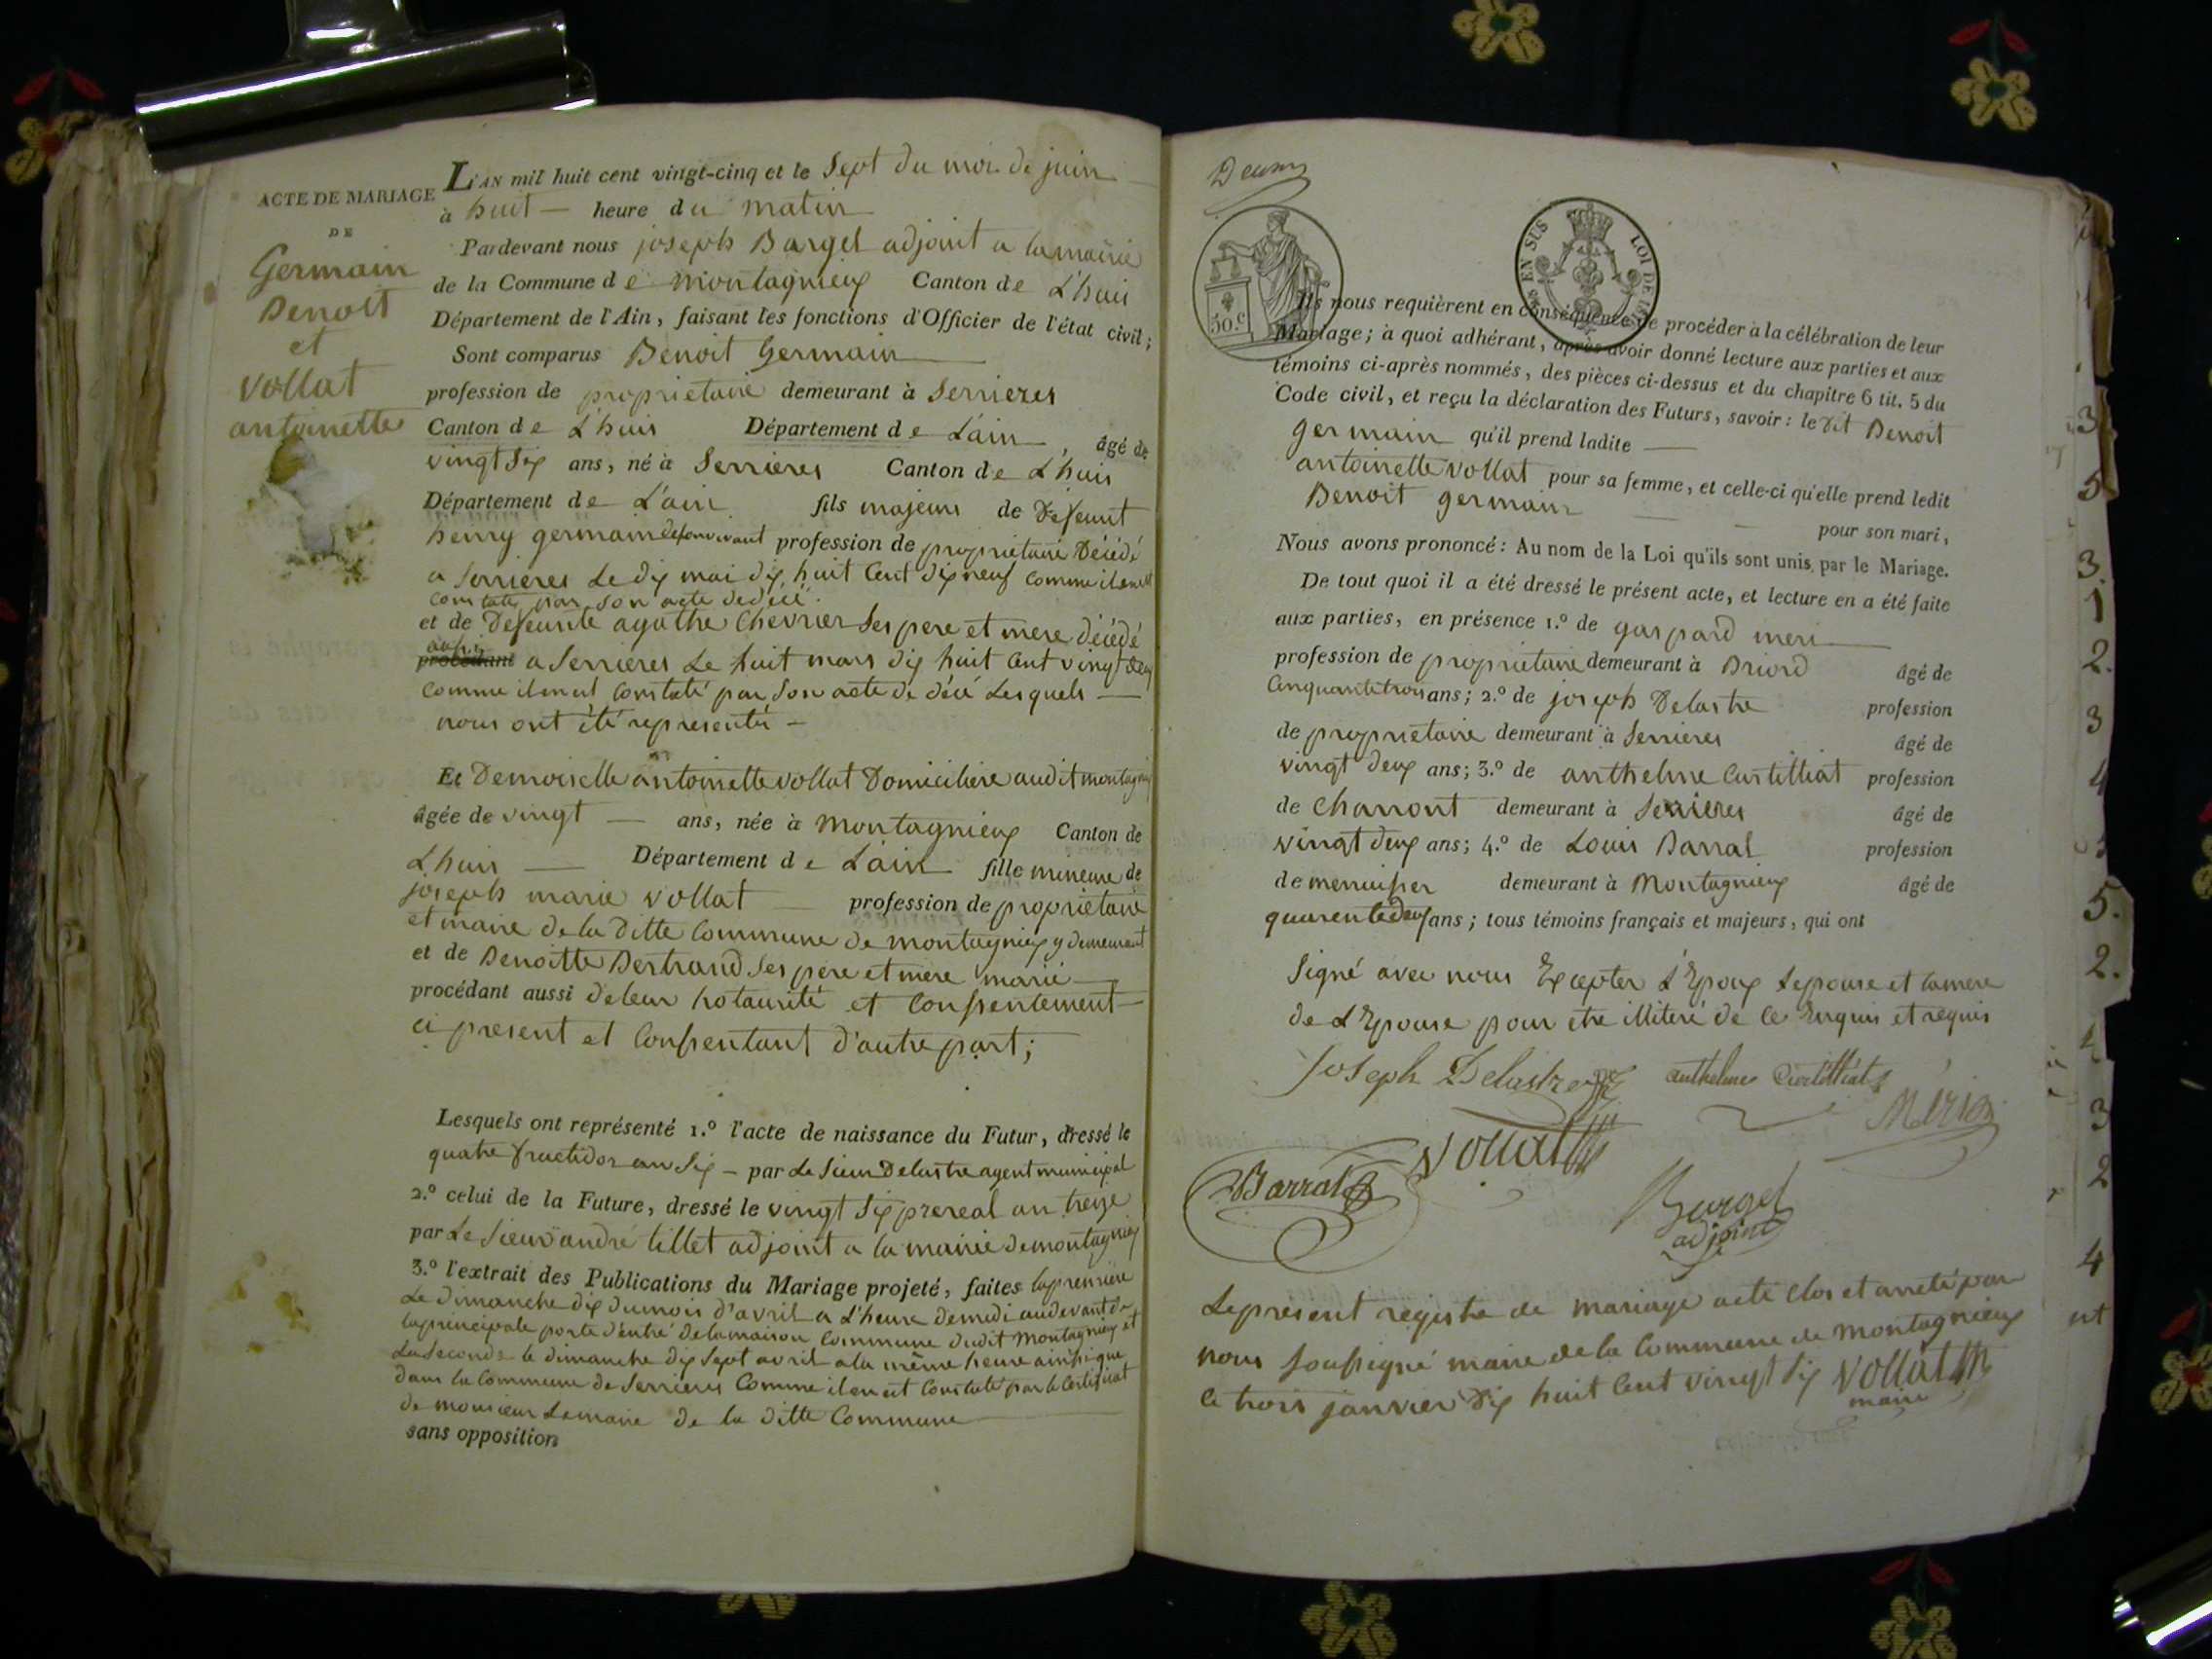 ACTE DE MARIAGE
DE
Germain
Benoit
et
vollat
antoinette
L'AN mil huit cent vingt-cinq et le Sept du moi de juin
à huit heure du matin
Pardevant nous joseph Bargel adjoint a la mairie
de la Commune de montagnieux Canton de L'huis
Département de l'Ain, faisant les fonctions d'Officier de l'état civil;
Sont comparus Benoit Germain
profession de proprietaire demeurant à Serrieres
Canton de L'huis Département de L'ain, âgé de
vingt Six ans, né à Serrieres Canton de L'huis
Département de L'ain fils majeur de defeunt
henry germain de son vivant profession de proprietaire Décédé
a Serrieres Le dix mai dix huit Cent dix neuf comme il en est
constaté par son acte de décé
et de Defeunte agathe Chevrier Ses pere et mere décédé
aussi
procédant a Serrieres Le huit mars dix huit Cent vingt deux
comme il en est constaté par Son acte de décé Lesquels
nous ont été representés
Et Demoiselle antoinette vollat Domiciliere audit montagnieux
âgée de vingt ans, née à montagnieux Canton de
L'huis Département de L'ain fille mineure de
joseph marie vollat profession de proprietaire
et maire de la ditte Commune de montagnieux y demeurant
et de Benoitte Bertrand Ses pere et mere marié
procédant aussi de leur hotaurité et Consentement
ci present et Consentant d'autre part;
Lesquels ont représenté 1.º l'acte de naissance du Futur, dressé le
quatre fructidor an Six - par Le Sieur Delastre agent municipal
2.º celui de la Future, dressé le vingt Six prereal an treize
par Le Sieur andré lillet adjoint a la mairie de montagnieux
3.º l'extrait des Publications du Mariage projeté, faites la premiere
Le dimanche dix du mois d'avril a L'heure de midi au devant de
la principale porte d'entré de la maison Commune dudit montagnieux et
La Seconde le dimanche dix Sept avril a la même heure ainsi que
dans la Commune de Serrieres Comme il en est Constaté par le Certificat
de monsieur Lemaire de la ditte Commune
sans opposition
50.c
EN SUS
LOI DE
Ils nous requièrent en conséquence de procéder à la célébration de leur
Mariage; à quoi adhérant, après avoir donné lecture aux parties et aux
témoins ci-après nommés, des pièces ci-dessus et du chapitre 6 tit. 5 du
Code civil, et reçu la déclaration des Futurs, savoir: le dit Benoit
germain qu'il prend ladite
antoinette vollat pour sa femme, et celle-ci qu'elle prend ledit
Benoit germain
pour son mari,
Nous avons prononcé: Au nom de la Loi qu'ils sont unis par le Mariage.
De tout quoi il a été dressé le présent acte, et lecture en a été faite
aux parties, en présence 1.º de gaspard meri
profession de proprietaire demeurant à Briord âgé de
Cinquante trois ans; 2.º de joseph Delastre profession
de proprietaire demeurant à Serrieres âgé de
vingt deux ans; 3.º de anthelme Curtilliat profession
de Charront demeurant à Serrieres âgé de
vingt deux ans; 4.º de Louis Barral profession
de menuisier demeurant à Montagnieux âgé de
quarente deux ans; tous témoins français et majeurs, qui ont
Signé avec nous Excepter L'Epoux Lepouse et la mere
de L'Epouse pour etre illiteré de Ce Enquis et requis
Joseph Delastre anthelme Curtilliat
Barral vollat
Bargel
adjoint
Le present registre de mariage a été Clos et arreté par
nous Soussigné maire de la Commune de Montagnieux
le trois janvier dix huit Cent vingt Six vollat
maire
3
5
3.
1
2.
3
4
5.
2.
3
2
4